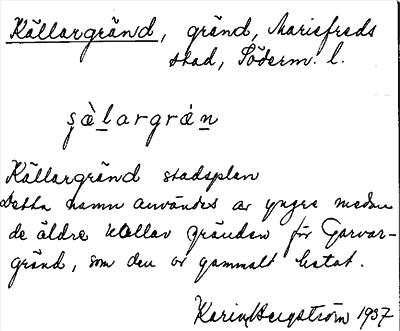 Källargränd, gränd, Mariefreds
stad, Söderm. l.
şὰlargrán
Källargränd stadsplan
Detta namn användes av yngre medan
de äldre kallar gränden för Garvar-
gränd, som den av gammalt hetat.
Karin Bergström 1937